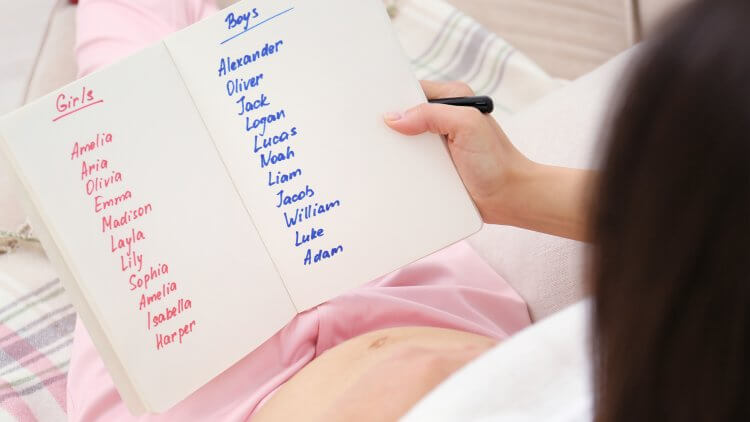 Girls
Amelia
Aria
Olivia
Emma
Madison
Layla
Lily
Sophia
Amelia
Isabella
Harper
Boys
Alexander
Oliver
Jack
Logan
Lucas
Noah
Liam
Jacob
William
Luke
Adam